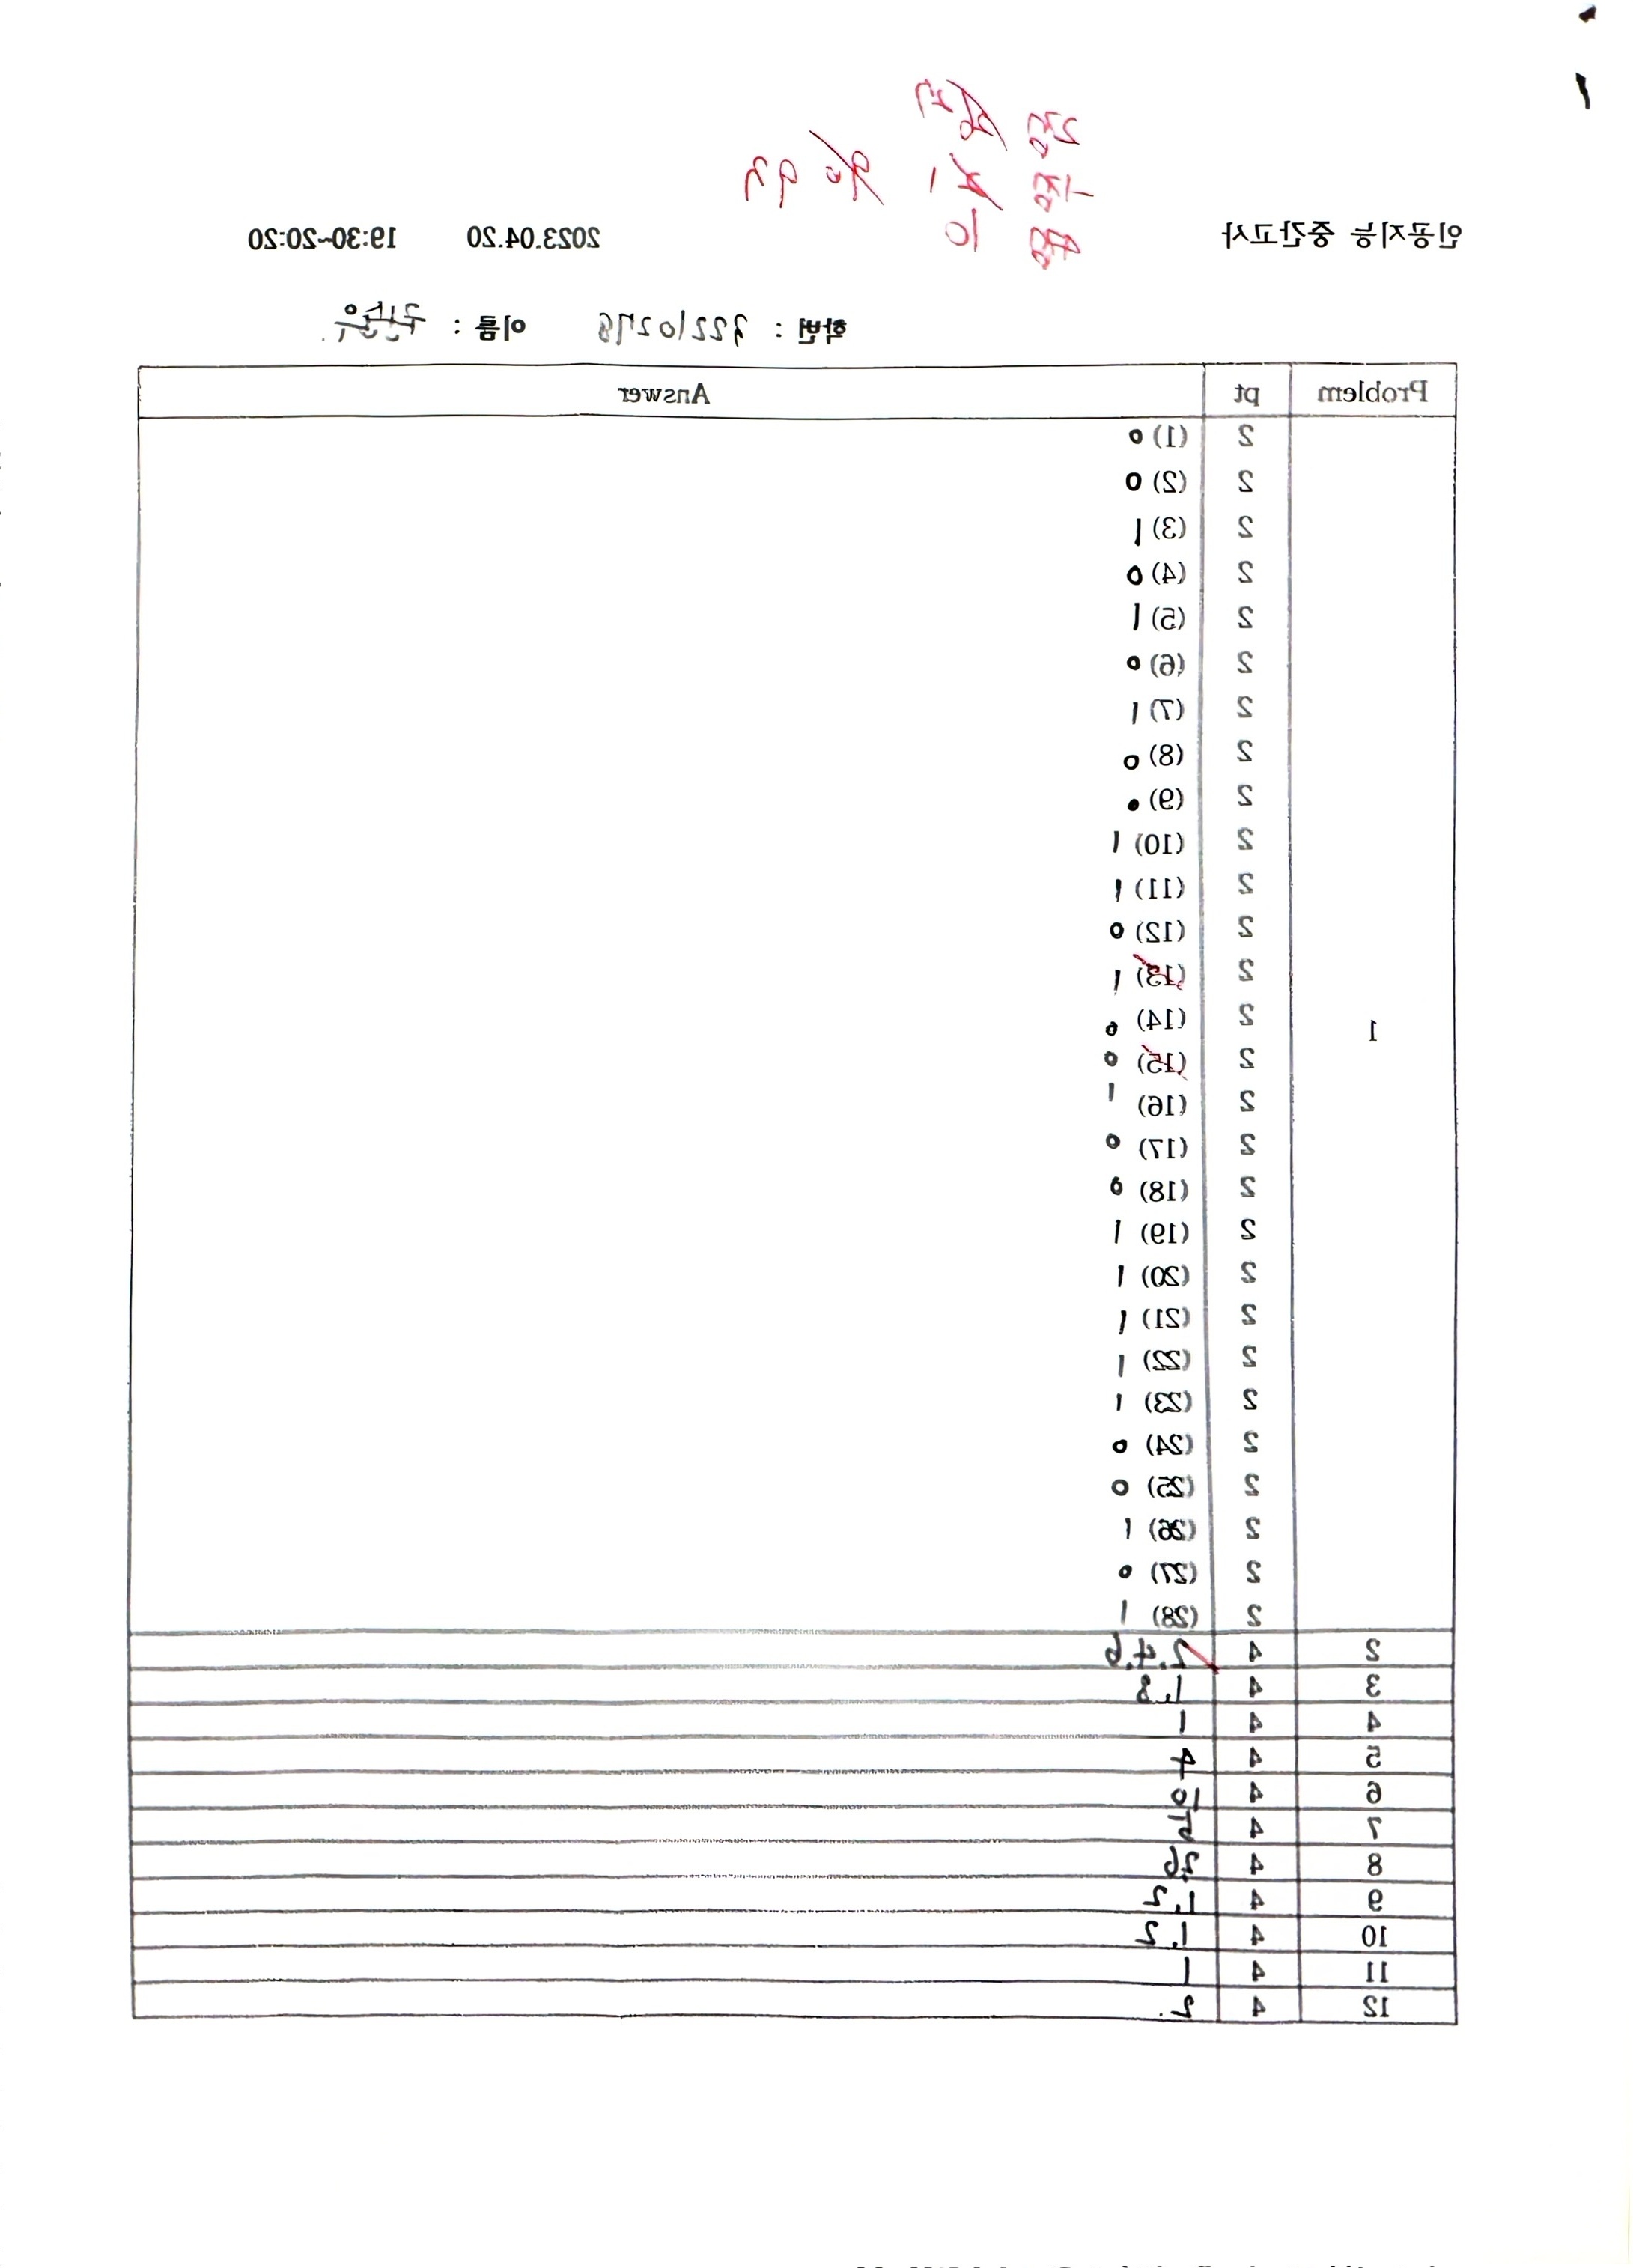 인공지능 중간고사 2023.04.20 19:30~20:20
학번 : 32210278 이름 :
Problem pt Answer
1
2 (1) 0
2 (2) 0
2 (3) 1
2 (4) 0
2 (5) 1
2 (6) 0
2 (7) 1
2 (8) 0
2 (9) 0
2 (10) 1
2 (11) 1
2 (12) 0
2 (13) 1
2 (14) 0
2 (15) 0
2 (16) 1
2 (17) 0
2 (18) 0
2 (19) 1
2 (20) 1
2 (21) 1
2 (22) 1
2 (23) 1
2 (24) 0
2 (25) 0
2 (26) 1
2 (27) 0
2 (28) 1
2 4 2.4.6
3 4 1.3
4 4 1
5 4 4
6 4 10
7 4 15
8 4 26
9 4 1.2
10 4 1.2
11 4 1
12 4 2